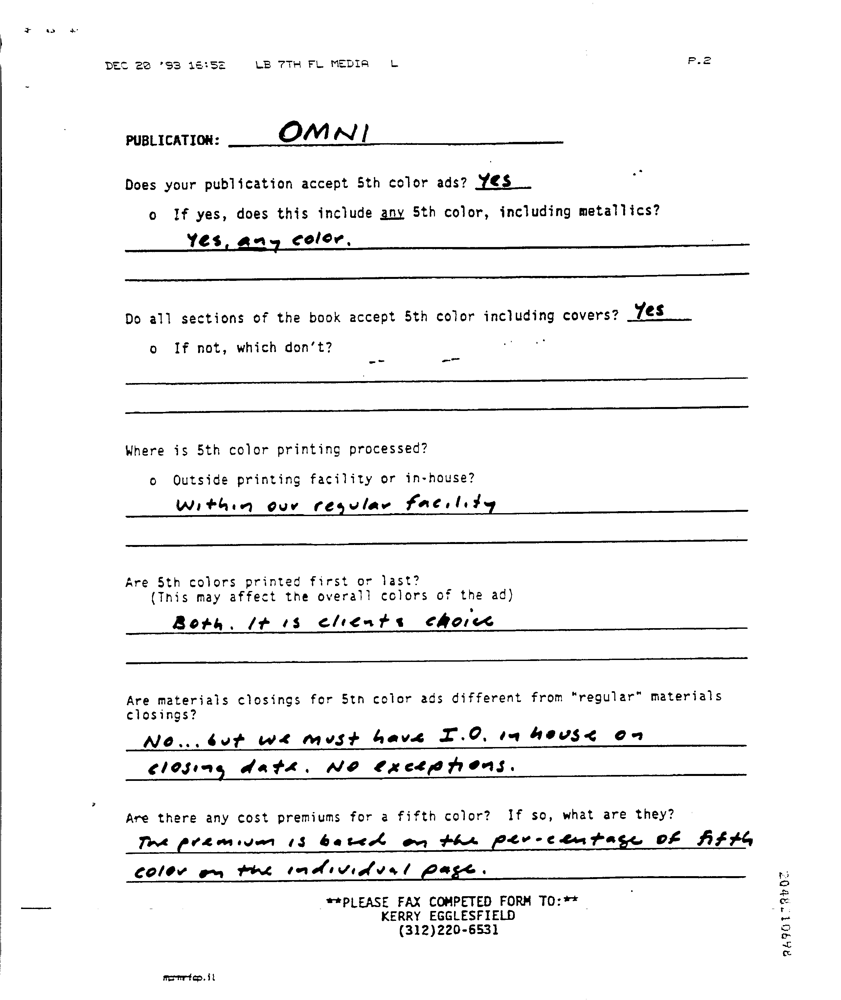 DEC 20 '93 16:52 LB 7TH FL MEDIA L P.2
PUBLICATION: OMNI
Does your publication accept 5th color ads? Yes
o If yes, does this include any 5th color, including metallics?
Yes, any color.
Do all sections of the book accept 5th color including covers? Yes
o If not, which don't?
-- --
Where is 5th color printing processed?
o Outside printing facility or in-house?
Within our regular facility
Are 5th colors printed first or last?
(This may affect the overall colors of the ad)
Both. It is clients choice
Are materials closings for 5th color ads different from "regular" materials
closings?
No... but we must have I.O. in house on
closing date. No exceptions.
Are there any cost premiums for a fifth color? If so, what are they?
The premium is based on the per-centage of fifth
color on the individual page.
**PLEASE FAX COMPETED FORM TO:**
KERRY EGGLESFIELD
(312)220-6531